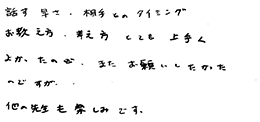 話す早さ、相手とのタイミング
お教え方、考え方 とても上手く
よかったので、またお願いしたかった
のですが、
他の先生も楽しみです。